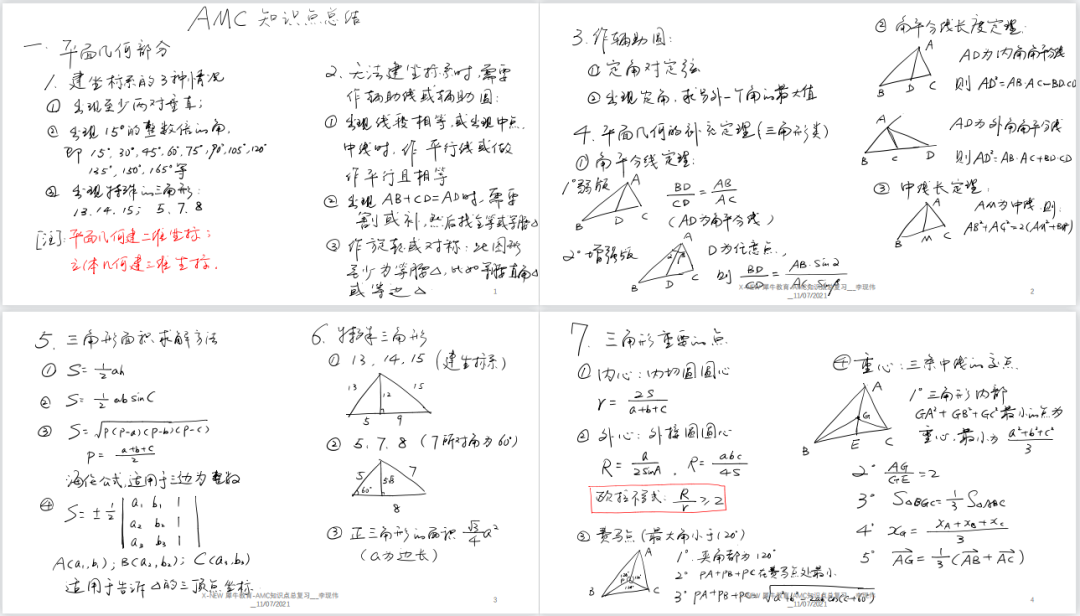 AMC 知识点总结
一. 平面几何部分
1. 建坐标系的3种情况
① 出现至少两对垂直;
② 出现15°的整数倍的角.
即 15°, 30°, 45°, 60°, 75°, 90°, 105°, 120°
135°, 150°, 165°等
③ 出现特殊的三角形:
13. 14. 15; 5. 7. 8
[注]: 平面几何建二维坐标;
立体几何建三维坐标.
2. 无法建坐标系时, 需要
作辅助线或辅助圆:
① 出现线段相等, 或出现中点.
中线时, 作平行线或做
作平行且相等
② 出现 AB+CD=AD时, 需要
割或补, 然后找全等或等腰△
③ 作旋转或对称: 此图形
至少为等腰△, 比如等腰直角△
或等边△
1
3. 作辅助圆:
① 定角对定弦
② 出现定角, 求另外一个角的最大值
4. 平面几何的补充定理 (三角形类)
① 角平分线定理:
1° 弱版
A B D C
BD/CD = AB/AC
(AD为角平分线)
2° 增强版
A B D C
D为任意点,
则 BD/CD = AB·sin2/AC·sin1
② 角平分线长度定理:
A B D C
AD为内角角平分线
则 AD²=AB·AC-BD·CD
A B C D
AD为外角角平分线
则 AD²=AB·AC+BD·CD
③ 中线长定理:
A B M C
AM为中线. 则:
X-NEW 犀牛教育-AMC知识点总复习__李现伟
__11/07/2021
2
5. 三角形面积求解方法
① S= 1/2 ah
② S= 1/2 ab sinC
③ S=√P(P-a)(P-b)(P-c)
P= (a+b+c)/2
海伦公式, 适用于三边为整数
④ S=± 1/2 | a₁ b₁ 1 |
| a₂ b₂ 1 |
| a₃ b₃ 1 |
A(a₁,b₁); B(a₂,b₂); C(a₃,b₃)
适用于告诉△的三顶点坐标.
6. 特殊三角形
① 13. 14. 15 (建坐标系)
13 12 15
5 9
② 5. 7. 8 (7所对角为60°)
5 7
60°
8
③ 正三角形的面积 √3/4 a²
(a为边长)
X-NEW 犀牛教育-AMC知识点总复习__李现伟
__11/07/2021
3
7. 三角形重要的点
① 内心: 内切圆圆心
r= 2S/(a+b+c)
② 外心: 外接圆圆心
R= a/2sinA , R= abc/4S
欧拉不等式: R/r ≥2
③ 费马点 (最大角小于120°)
A B C P 120° 120° 120°
1° 夹角都为120°
2° PA+PB+PC在费马点处最小.
3° PA+PB+PC=
④ 重心: 三条中线的交点.
A G B E C
1° 三角形内部
GA²+GB²+GC²最小的点为
重心, 最小为 (a²+b²+c²)/3
2° AG/GE =2
3° S△BGC= 1/3 S△ABC
4° x_G= (x_A+x_B+x_C)/3
5° AG= 1/3 (AB+AC)
X-NEW 犀牛教育-AMC知识点总复习__李现伟
__11/07/2021
4